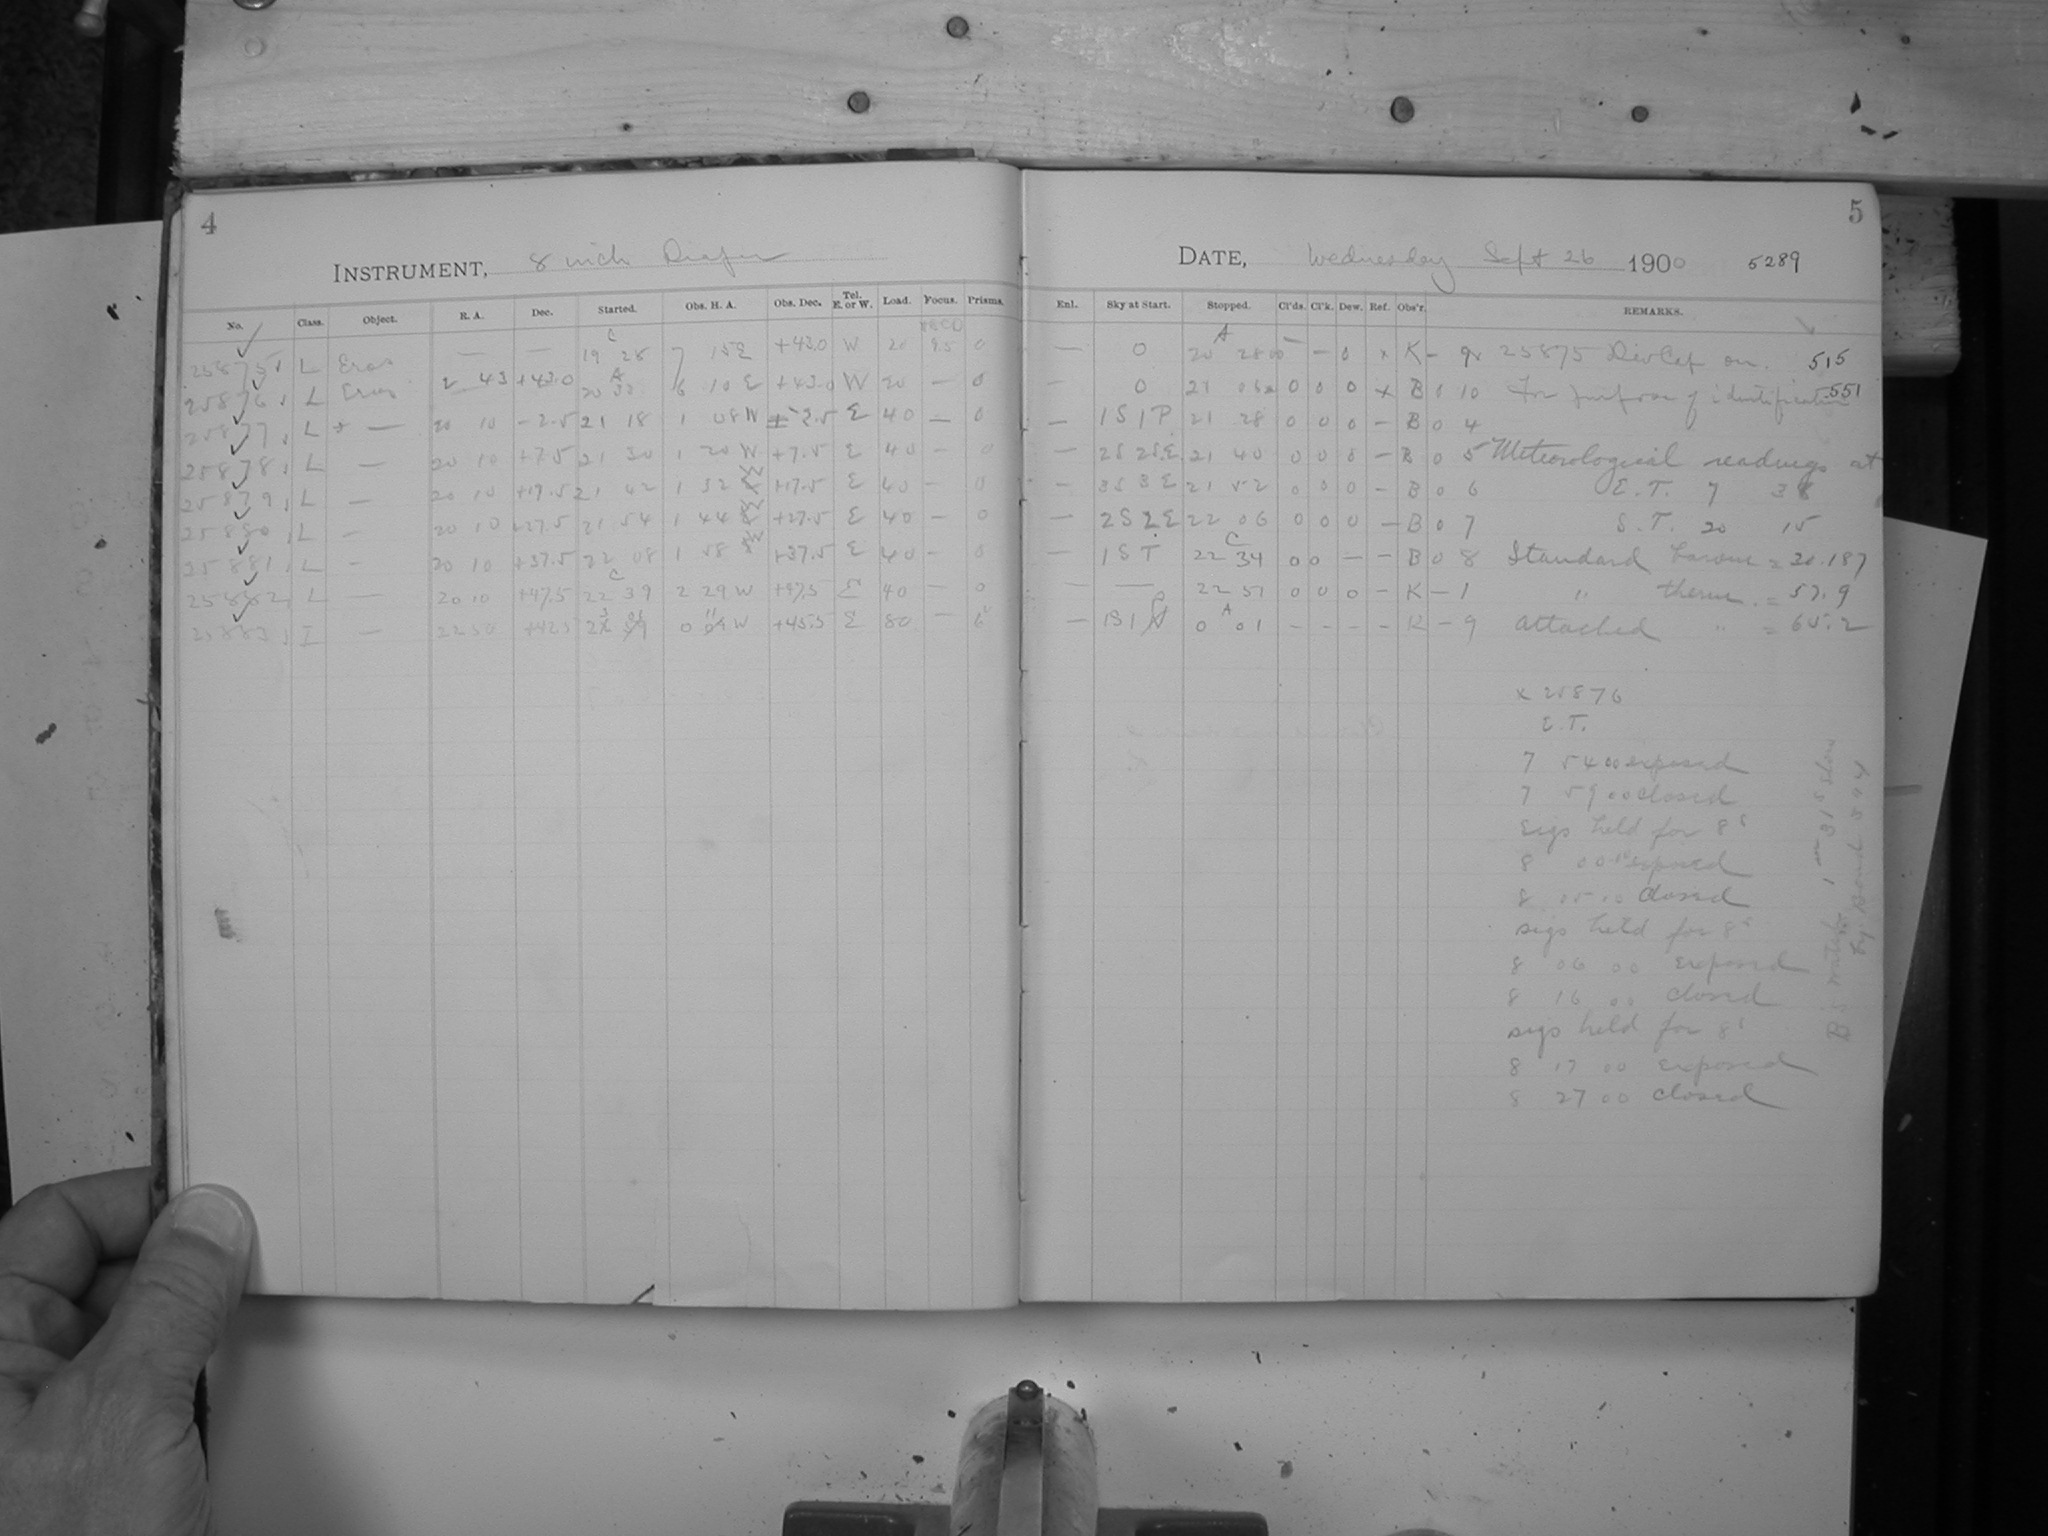 4
INSTRUMENT, 8 inch Draper
No. Class. Object. R. A. Dec. Started. Obs. H. A. Obs. Dec. Tel. E. or W. Load. Focus. Prisms.
25875 L Eros — — C 19 28 7 15 E +43.0 W 20 95 0
25876 L Eros 2 43 +43.0 A 20 33 6 10 E +43.0 W 20 — 0
25877 L — 20 10 -2.5 21 18 1 08 W -2.5 E 40 — 0
25878 L — 20 10 +7.5 21 30 1 20 W +7.5 E 40 — 0
25879 L — 20 10 +17.5 21 42 1 32 W +17.5 E 40 — 0
25880 L — 20 10 +27.5 21 54 1 44 W +27.5 E 40 — 0
25881 L — 20 10 +37.5 22 08 1 58 W +37.5 E 40 — 0
25882 L — 20 10 +47.5 C 22 39 2 29 W +47.5 E 40 — 0
25883 I — 22 50 +42.5 W +45.5 E 80 —
5
DATE, Wednesday Sept 26 1900 5289
Enl. Sky at Start. Stopped. Cl'ds. Cl'k. Dew. Ref. Obs'r. REMARKS.
— 0 A 20 28 00 — — 0 x K — 9 25875 Div Cap on. 515
— 0 21 0 0 0 x B 0 10 For purpose of identification 551
— 1S 1P 21 28 0 0 0 — B 0 4
— 2S 2S E 21 40 0 0 0 — B 0 5 Meteorological readings at
— 3S 3 E 21 52 0 0 0 — B 0 6 E.T. 7 38
— 2S 2 E 22 06 0 0 0 — B 0 7 S.T. 20 15
— 1 S T C 22 34 0 0 — — B 0 8 Standard barom = 30.187
— — 22 51 0 0 0 — K — 1 " therm. = 57.9
— A 0 01 — — — — K — 9 Attached " = 65.2
x 25876
E.T.
7 54 00 exposed
7 59 00 closed
Sigs held for 8s
8 00 exposed
8 05 00 closed
sigs held for 8s
8 06 00 exposed
8 16 00 closed
sigs held for 8s
8 17 00 exposed
8 27 00 closed
B's watch 1m 31s slow
by Bond 394